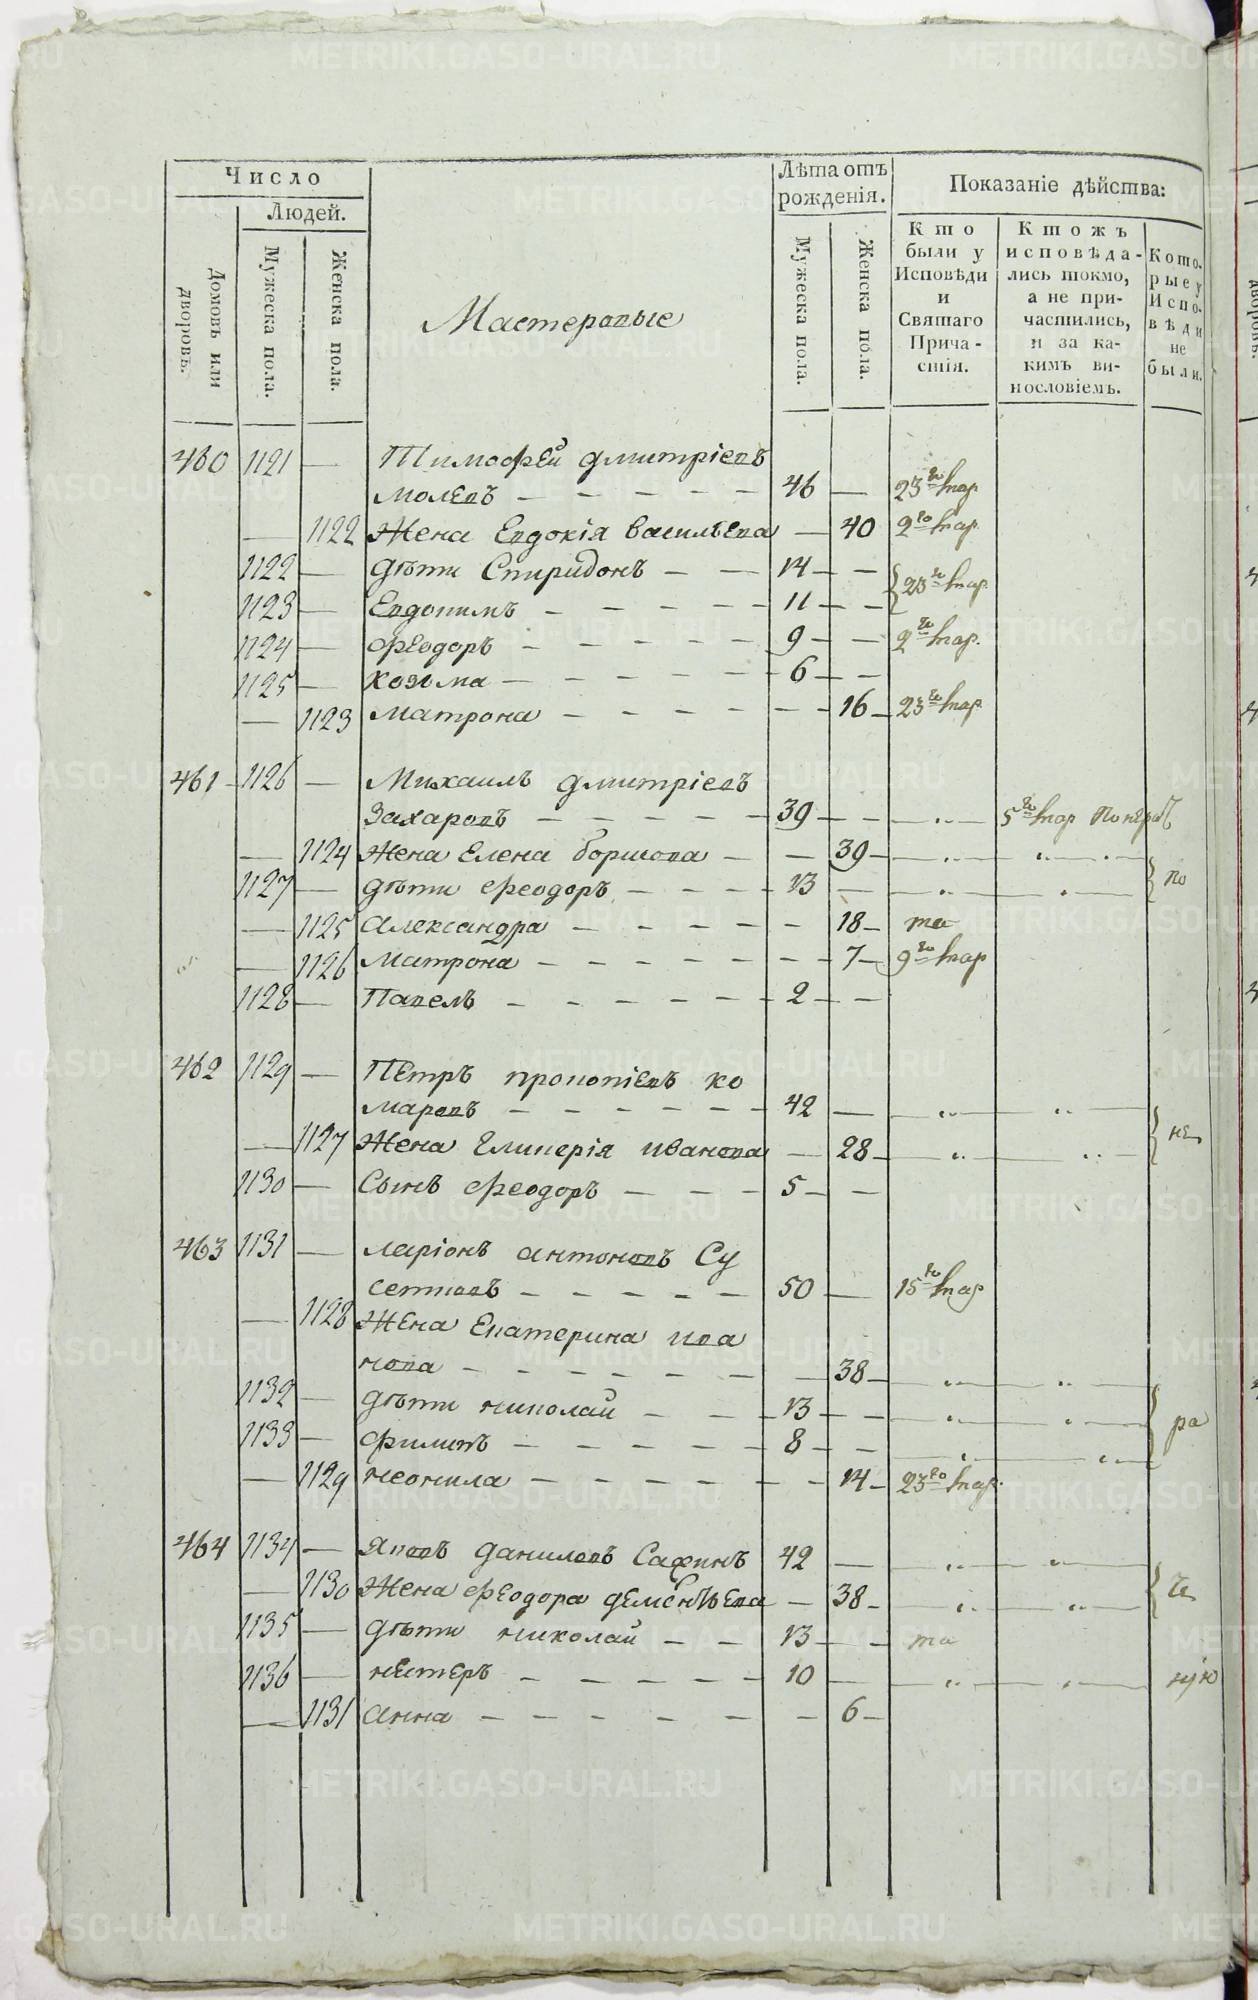 Число
Людей.
Домовъ или дворовъ.
Мужеска пола.
Женска пола.
Мастеровые
Лѣта отъ
рожденія.
Мужеска пола.
Женска пола.
Показаніе дѣйства:
Кто
были у
Исповѣди
и
Святаго
Прича-
стія.
Ктожъ
исповѣда-
лись токмо,
а не при-
частились,
и за ка-
кимъ ви-
нословіемъ.
Кото-
рые у
Испо-
вѣди
не
были.
460 1121 — Тимофей Дмитріевъ
Молевъ — 46 — 23го мар
— 1122 Жена Евдокія Васильева — 40 2го мар
1122 — Дѣти Спиридонъ — 14 — 23го мар
1123 — Евдокимъ — 11 —
1124 — Феодоръ — 9 — 2го мар.
1125 — Козьма — 6 —
— 1123 Матрона — 16 — 23го мар
461 1126 — Михаилъ Дмитріевъ
Захаровъ — 39 — 5го мар
— 1124 Жена Елена Борисова — 39 —
1127 — Дѣти Феодоръ — 13 — по
— 1125 Александра — 18 — та
— 1126 Матрона — 7 — 9го мар
1128 — Павелъ — 2 —
462 1129 — Петръ Прокопіевъ Ко
маровъ — 42 —
— 1127 Жена Гликерія Иванова — 28 — не
1130 — Сынъ Феодоръ — 5 —
463 1131 — Ларіонъ Антоновъ Су
сетковъ — 50 — 15го мар
— 1128 Жена Екатерина Ива
нова — 38 —
1132 — Дѣти Николай — 13 — ра
1133 — Филипъ — 8 —
— 1129 Неонила — 14 — 23го мар.
464 1134 — Яковъ Даниловъ Сахинъ 42 —
— 1130 Жена Феодора Дементьева — 38 — че
1135 — Дѣти Николай — 13 — та
1136 — Нестеръ — 10 — нію
— 1131 Анна — 6 —
METRIKI.GASO-URAL.RU